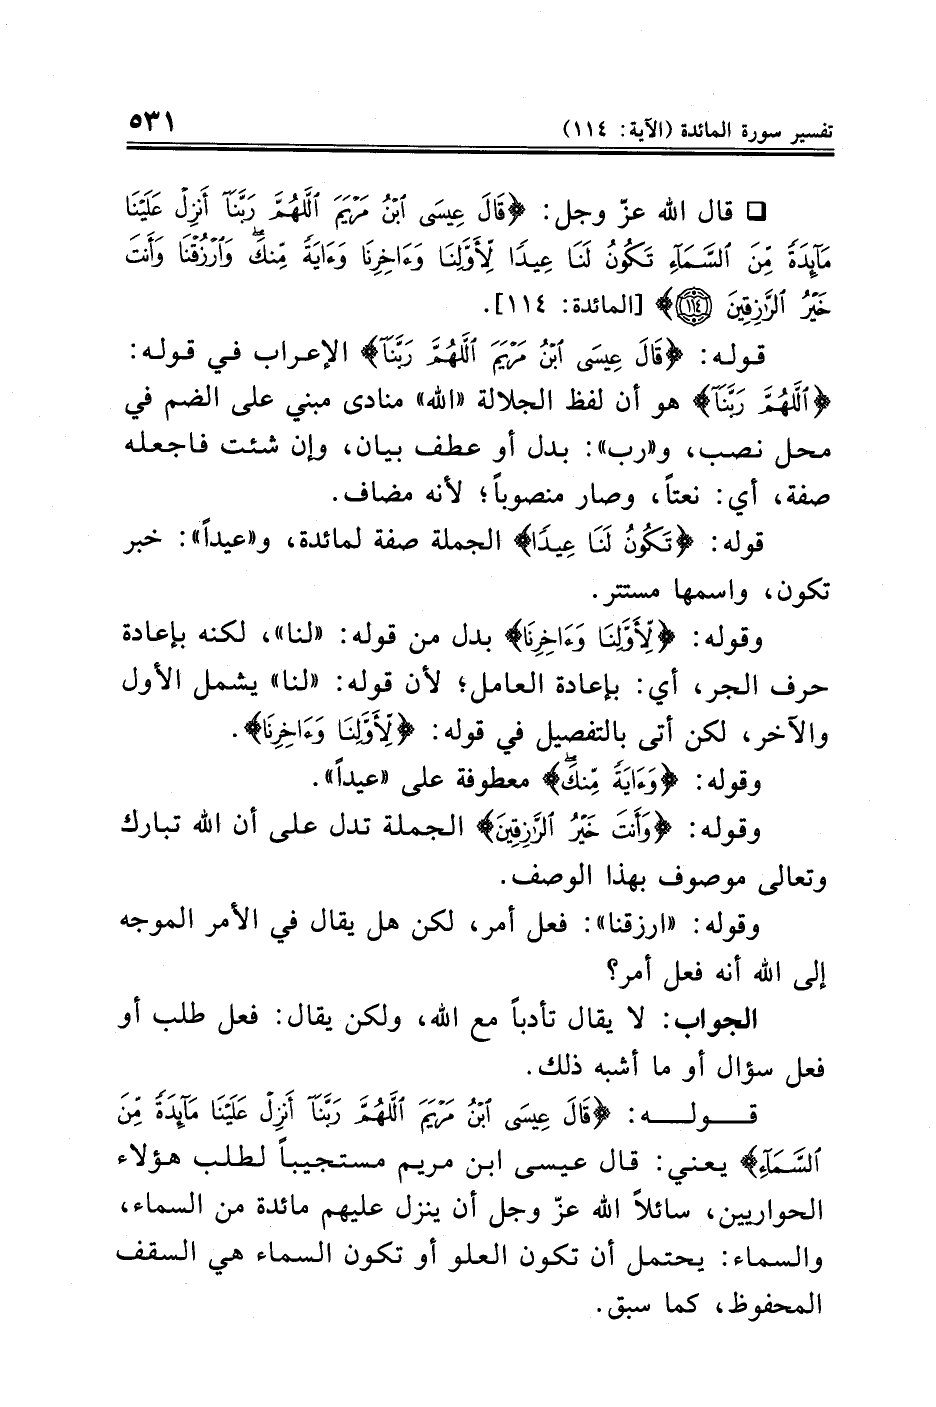 تفسير سورة المائدة (الآية: ١١٤) ٥٣١
❑ قال الله عزّ وجل: ﴿قَالَ عِيسَى ٱبْنُ مَرْيَمَ ٱللَّهُمَّ رَبَّنَآ أَنزِلْ عَلَيْنَا
مَآئِدَةً مِّنَ ٱلسَّمَآءِ تَكُونُ لَنَا عِيدًا لِّأَوَّلِنَا وَءَاخِرِنَا وَءَايَةً مِّنكَۖ وَٱرْزُقْنَا وَأَنتَ
خَيْرُ ٱلرَّٰزِقِينَ ١١٤﴾ [المائدة: ١١٤].
قوله: ﴿قَالَ عِيسَى ٱبْنُ مَرْيَمَ ٱللَّهُمَّ رَبَّنَآ﴾ الإعراب في قوله:
﴿ٱللَّهُمَّ رَبَّنَآ﴾ هو أن لفظ الجلالة «الله» منادى مبني على الضم في
محل نصب، و«رب»: بدل أو عطف بيان، وإن شئت فاجعله
صفة، أي: نعتاً، وصار منصوباً؛ لأنه مضاف.
قوله: ﴿تَكُونُ لَنَا عِيدًا﴾ الجملة صفة لمائدة، و«عيداً»: خبر
تكون، واسمها مستتر.
وقوله: ﴿لِّأَوَّلِنَا وَءَاخِرِنَا﴾ بدل من قوله: «لنا»، لكنه بإعادة
حرف الجر، أي: بإعادة العامل؛ لأن قوله: «لنا» يشمل الأول
والآخر، لكن أتى بالتفصيل في قوله: ﴿لِّأَوَّلِنَا وَءَاخِرِنَا﴾.
وقوله: ﴿وَءَايَةً مِّنكَۖ﴾ معطوفة على «عيداً».
وقوله: ﴿وَأَنتَ خَيْرُ ٱلرَّٰزِقِينَ﴾ الجملة تدل على أن الله تبارك
وتعالى موصوف بهذا الوصف.
وقوله: «ارزقنا»: فعل أمر، لكن هل يقال في الأمر الموجه
إلى الله أنه فعل أمر؟
الجواب: لا يقال تأدباً مع الله، ولكن يقال: فعل طلب أو
فعل سؤال أو ما أشبه ذلك.
قـــولـــه: ﴿قَالَ عِيسَى ٱبْنُ مَرْيَمَ ٱللَّهُمَّ رَبَّنَآ أَنزِلْ عَلَيْنَا مَآئِدَةً مِّنَ
ٱلسَّمَآءِ﴾ يعني: قال عيسى ابن مريم مستجيباً لطلب هؤلاء
الحواريين، سائلاً الله عزّ وجل أن ينزل عليهم مائدة من السماء،
والسماء: يحتمل أن تكون العلو أو تكون السماء هي السقف
المحفوظ، كما سبق.